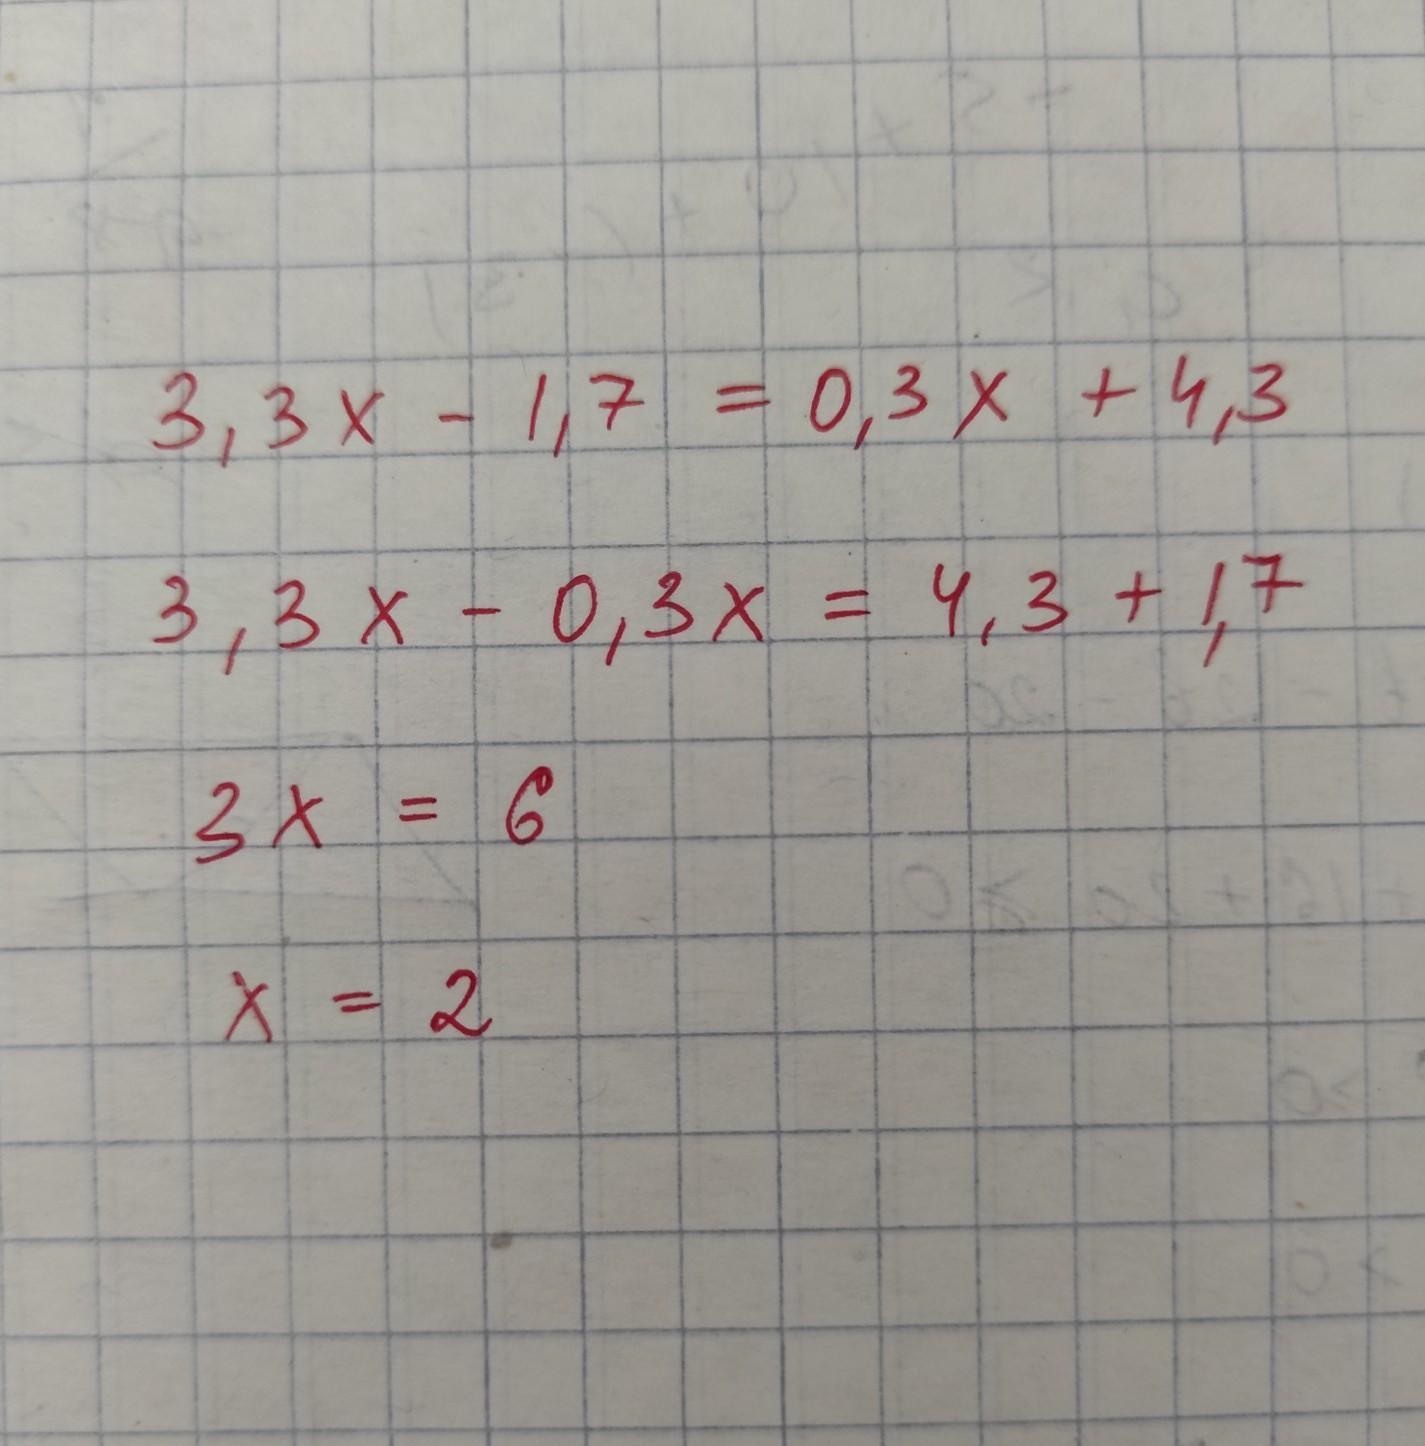 3,3x - 1,7 = 0,3x + 4,3
3,3x - 0,3x = 4,3 + 1,7
3x = 6
x = 2